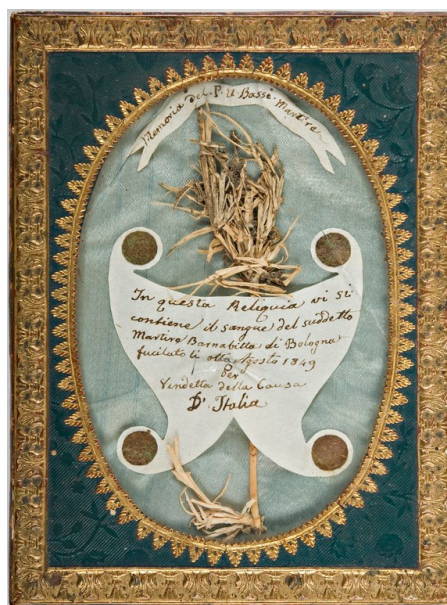 Memoria del P. U. Bassi Martire
In questa Reliquia vi si
contiene il sangue del suddetto
Martire Barnabitta di Bologna
fucilato li otto Agosto 1849
Per
Vendetta della Causa
D'Italia